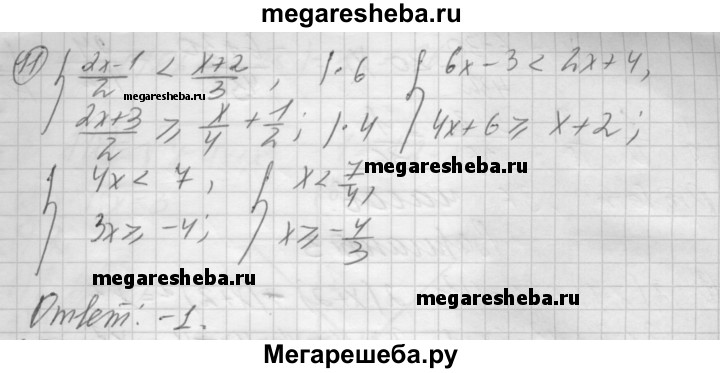 megaresheba.ru
11) { (2x-1)/2 < (x+2)/3, |·6 { 6x-3 < 2x+4,
megaresheba.ru
(2x+3)/2 ⩾ x/4 + 1/2; |·4 4x+6 ⩾ x+2;
megaresheba.ru
{ 4x < 7, { x < 7/4,
3x ⩾ -4; x ⩾ -4/3
megaresheba.ru
megaresheba.ru
Ответ: -1.
Мегарешеба.ру